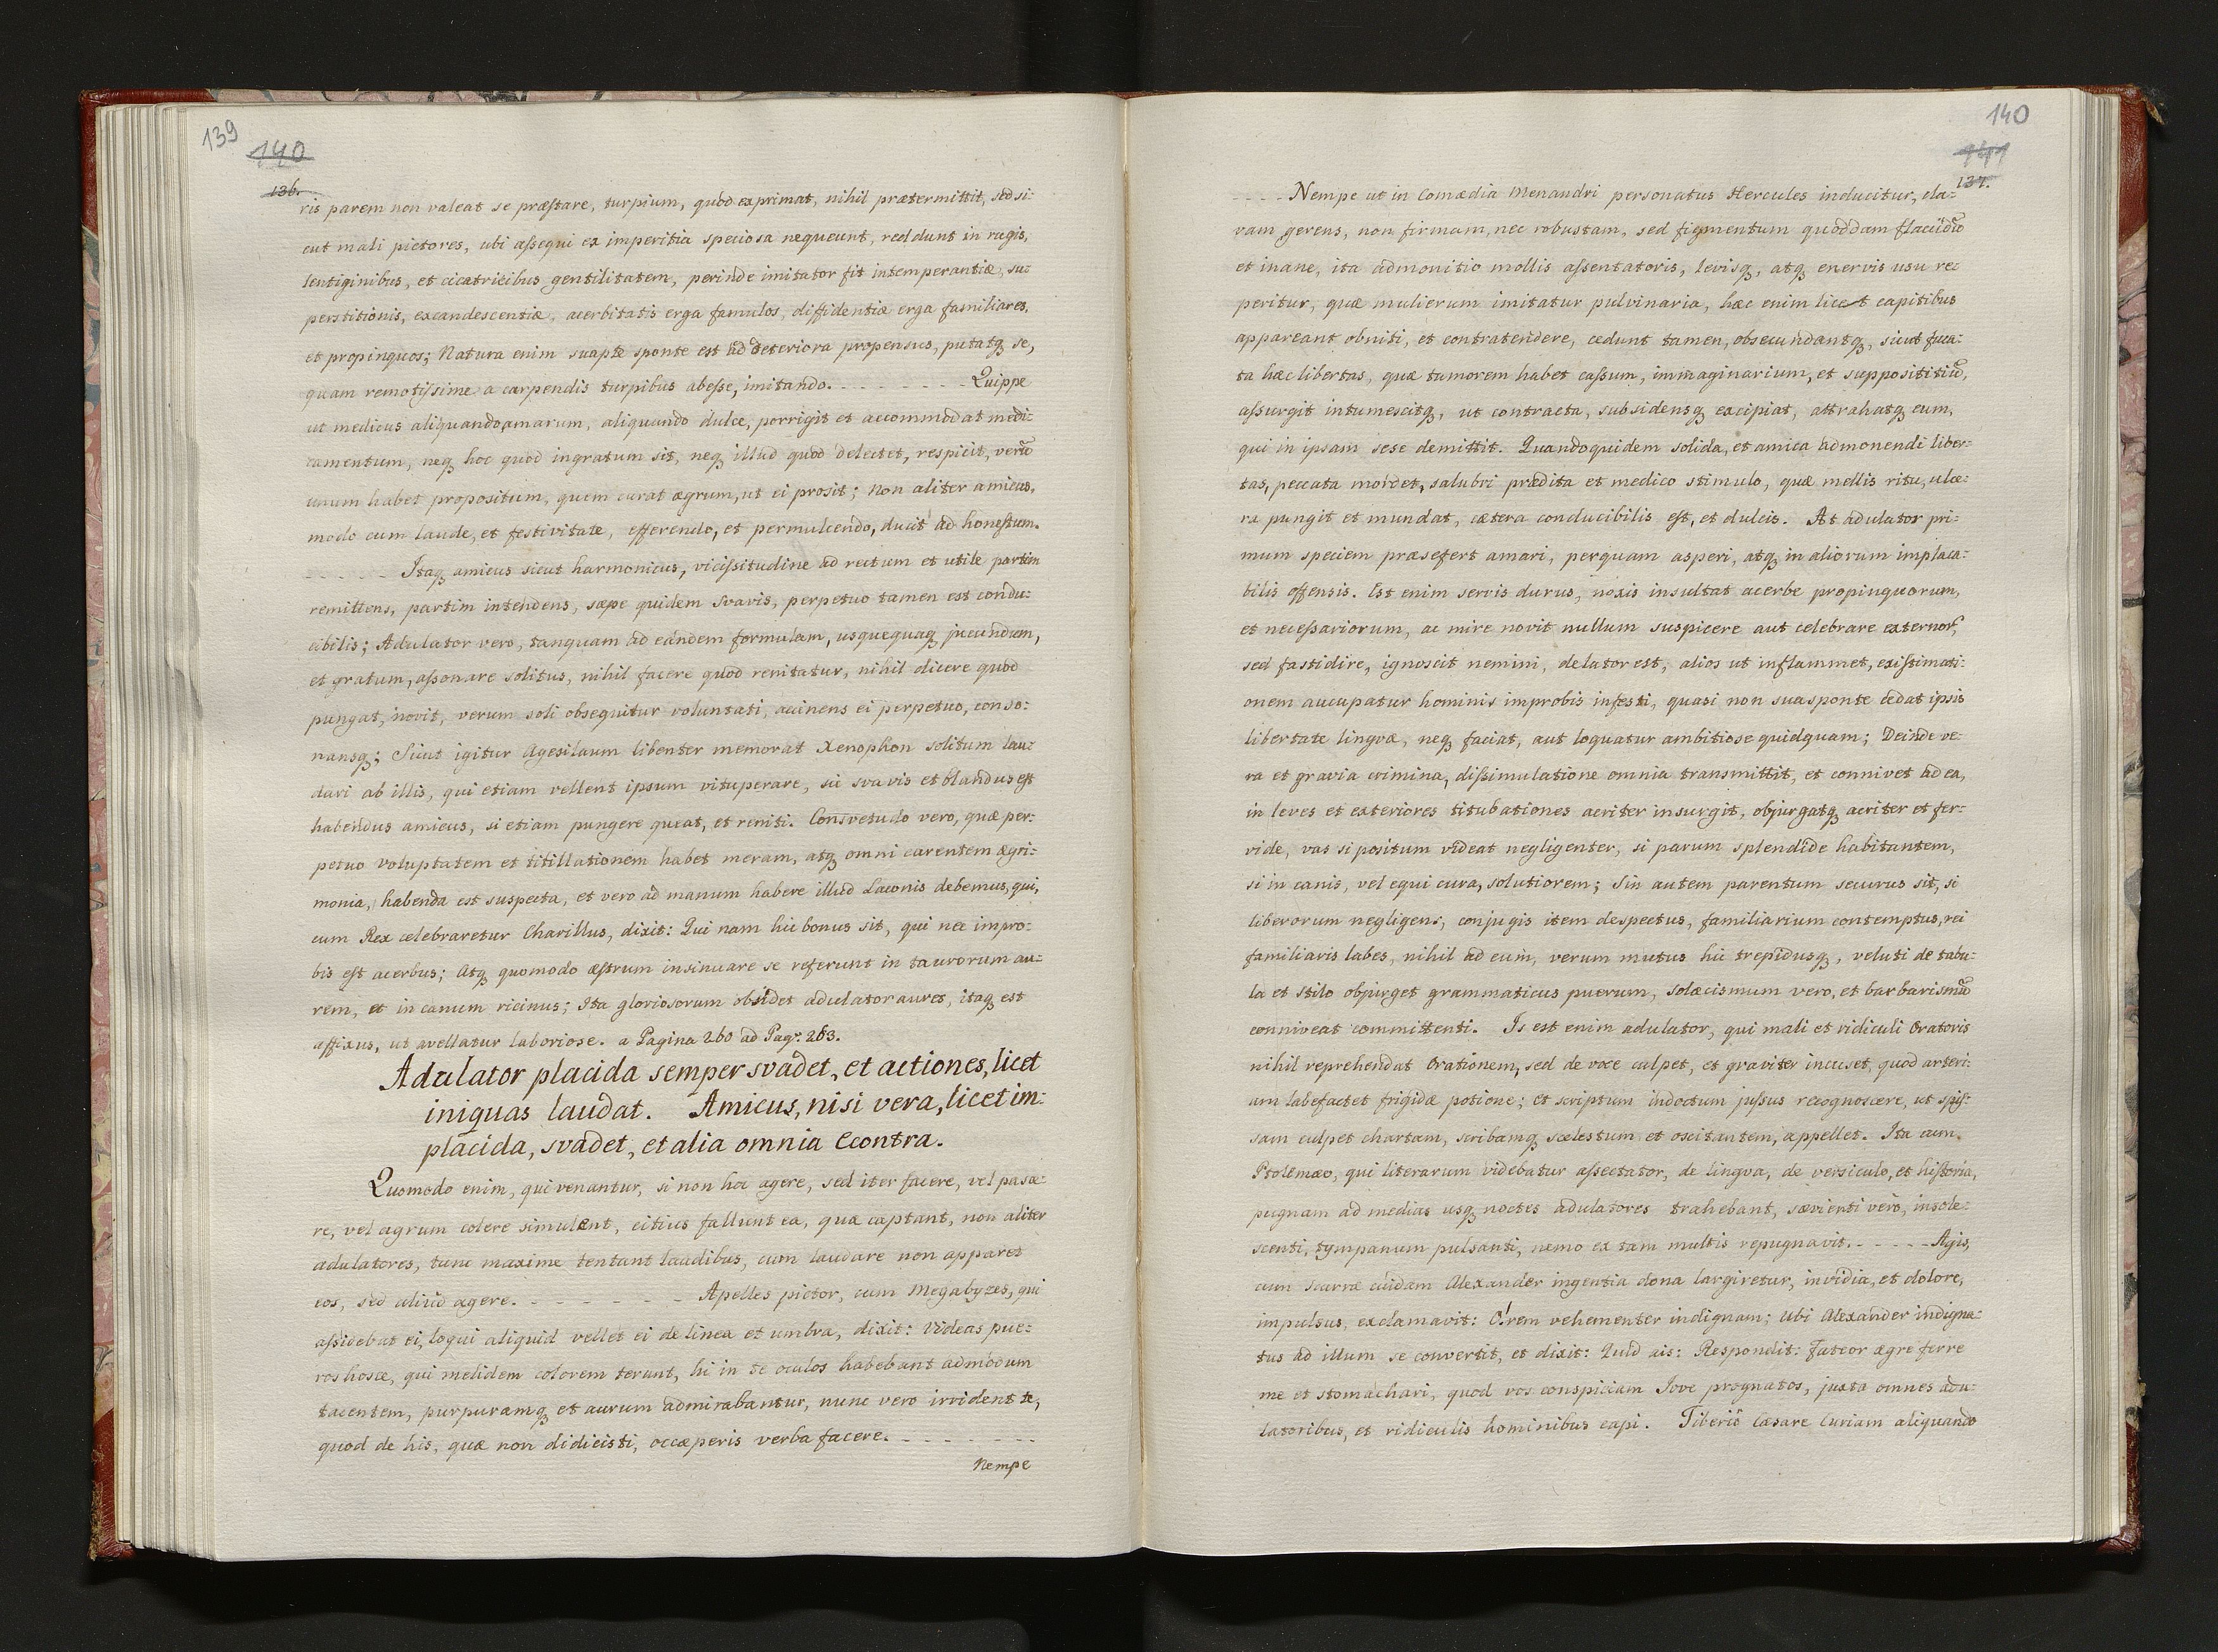 139
140
136.
ris parem non valeat se præstare, turpium, quod exprimat, nihil prætermittit, sed si:
cut mali pictores, ubi assequi ex imperitia speciosa nequeunt, reddunt in rugis,
lentiginibus, et cicatricibus gentilitatem, perinde imitator fit intemperantiæ, su:
perstitionis, excandescentiæ, acerbitatis erga famulos, diffidentiæ erga familiares,
et propinquos; Natura enim suapte sponte est ad deteriora propensus, putatq se,
quam remotissime a carpendis turpibus abesse, imitando. - - - - - - - - Quippe
ut medicus aliquando amarum, aliquando dulce, porrigit et accommodat medi:
camentum, neq hoc quod ingratum sit, neq illud quod delectet, respicit, verū
unum habet propositum, quem curat ægrum, ut ei prosit; Non aliter amicus,
modo cum laude, et festivitate, efferendo, et permulcendo, ducit ad honestum.
- - - - - Itaq amicus sicut harmonicus, vicissitudine ad rectum et utile partim
remittens, partim intendens, sæpe quidem svavis, perpetuo tamen est condu:
cibilis; Adulator vero, tanquam ad eandem formulam, usquequaq jucundum,
et gratum, assonare solitus, nihil facere quod renitatur, nihil dicere quod
pungat, novit, verum soli obsequitur voluntati, accinens ei perpetuo, conso:
nansq; Sicut igitur Agesilaum libenter memorat Xenophon solitum lau:
dari ab illis, qui etiam vellent ipsum vituperare, sic svavis et blandus est
habendus amicus, si etiam pungere queat, et reniti. Consvetudo vero, quæ per:
petuo voluptatem et titillationem habet meram, atq omni carentem ægri:
monia, habenda est suspecta, et vero ad manum habere illud Laconis debemus, qui,
cum Rex celebraretur Charillus, dixit: Qui nam hic bonus sit, qui nec impro:
bis est acerbus; Atq quomodo æstrum insinuare se referunt in taurorum au:
rem, et in canum ricinus; Ita gloriosorum obsidet adulator aures, itaq est
affixus, ut avellatur laboriose. a Pagina 260 ad Pag. 263.
Adulator placida semper svadet, et actiones, licet
iniquas laudat. Amicus, nisi vera, licet im:
placida, svadet, et alia omnia econtra.
Quomodo enim, qui venantur, si non hoc agere, sed iter facere, vel pasce:
re, vel agrum colere simulent, citius fallunt ea, quæ captant, non aliter
adulatores, tunc maxime tentant laudibus, cum laudare non apparet
eos, sed aliud agere. - - - - - - - Apelles pictor, cum Megabyzes, qui
assidebat ei, loqui aliquid vellet ei de linea et umbra, dixit: Videas pue:
ros hosce, qui melidem colorem terunt, hi in te oculos habebant admodum
tacentem, purpuramq et aurum admirabantur, nunc vero irrident te,
quod de his, quæ non didicisti, occæperis verba facere. - - - - - - - -
Nempe
140
141
137.
- - - - Nempe ut in Comædia Menandri personatus Hercules inducitur, cla:
vam gerens, non firmam, nec robustam, sed figmentum quoddam flaccidū
et inane, ita admonitio mollis assentatoris, levisq, atq enervis usu re:
peritur, quæ mulierum imitatur pulvinaria, hæc enim licet capitibus
appareant obniti, et contratendere, cedunt tamen, obsecundantq, sicut fuca:
ta hæc libertas, quæ tumorem habet cassum, immaginarium, et supposititiū,
assurgit intumescitq, ut contracta, subsidensq excipiat, attrahatq eum,
qui in ipsam sese demittit. Quandoquidem solida, et amica admonendi liber:
tas, peccata mordet, salubri prædita et medico stimulo, quæ mellis ritu, ulce:
ra pungit et mundat, cætera conducibilis est, et dulcis. At adulator pri:
mum speciem præsefert amari, perquam asperi, atq in aliorum implaca:
bilis offensis. Est enim servis durus, noxis insultat acerbe propinquorum,
et necessariorum, ac mire novit nullum suspicere aut celebrare externor,
sed fastidire, ignoscit nemini, delator est, alios ut inflammet, existimati:
onem aucupatur hominis improbis infesti, quasi non suasponte cedat ipsis
libertate lingvæ, neq faciat, aut loquatur ambitiose quidquam; Deinde ve:
ra et gravia crimina, dissimulatione omnia transmittit, et connivet ad ea,
in leves et exteriores titubationes acriter insurgit, objurgatq acriter et fer:
vide, vas si positum videat negligenter, si parum splendide habitantem,
si in canis, vel equi cura, solutiorem; Sin autem parentum securus sit, si
liberorum negligens, conjugis item despectus, familiarium contemptus, rei
familiaris labes, nihil ad eum, verum mutus hic trepidusq, veluti de tabu:
la et stilo objurget grammaticus puerum, solæcismum vero, et barbarismū
conniveat committenti. Is est enim adulator, qui mali et ridiculi Oratoris
nihil reprehendat Orationem, sed de voce culpet, et graviter incuset, quod arteri:
am labefactet frigidæ potione; et scriptum indoctum jussus recognoscere, ut spis:
sam culpet chartam, scribamq scelestum et oscitantem, appellet. Ita cum
Ptolemæo, qui literarum videbatur assectator, de lingva, de versiculo, et historia,
pugnam ad medias usq noctes adulatores trahebant, sævienti vero, insole:
scenti, tympanum pulsanti, nemo ex tam multis repugnavit. - - - - - Agis,
cum scurræ cuidam Alexander ingentia dona largiretur, invidia, et dolore,
impulsus, exclamavit: O! rem vehementer indignam; Ubi Alexander indigna:
tus ad illum se convertit, et dixit: Quid ais: Respondit: Fateor ægre ferre
me et stomachari, quod vos conspiciam Jove prognatos, juxta omnes adu:
latoribus, et ridiculis hominibus capi. Tiberio Cæsare Curiam aliquando